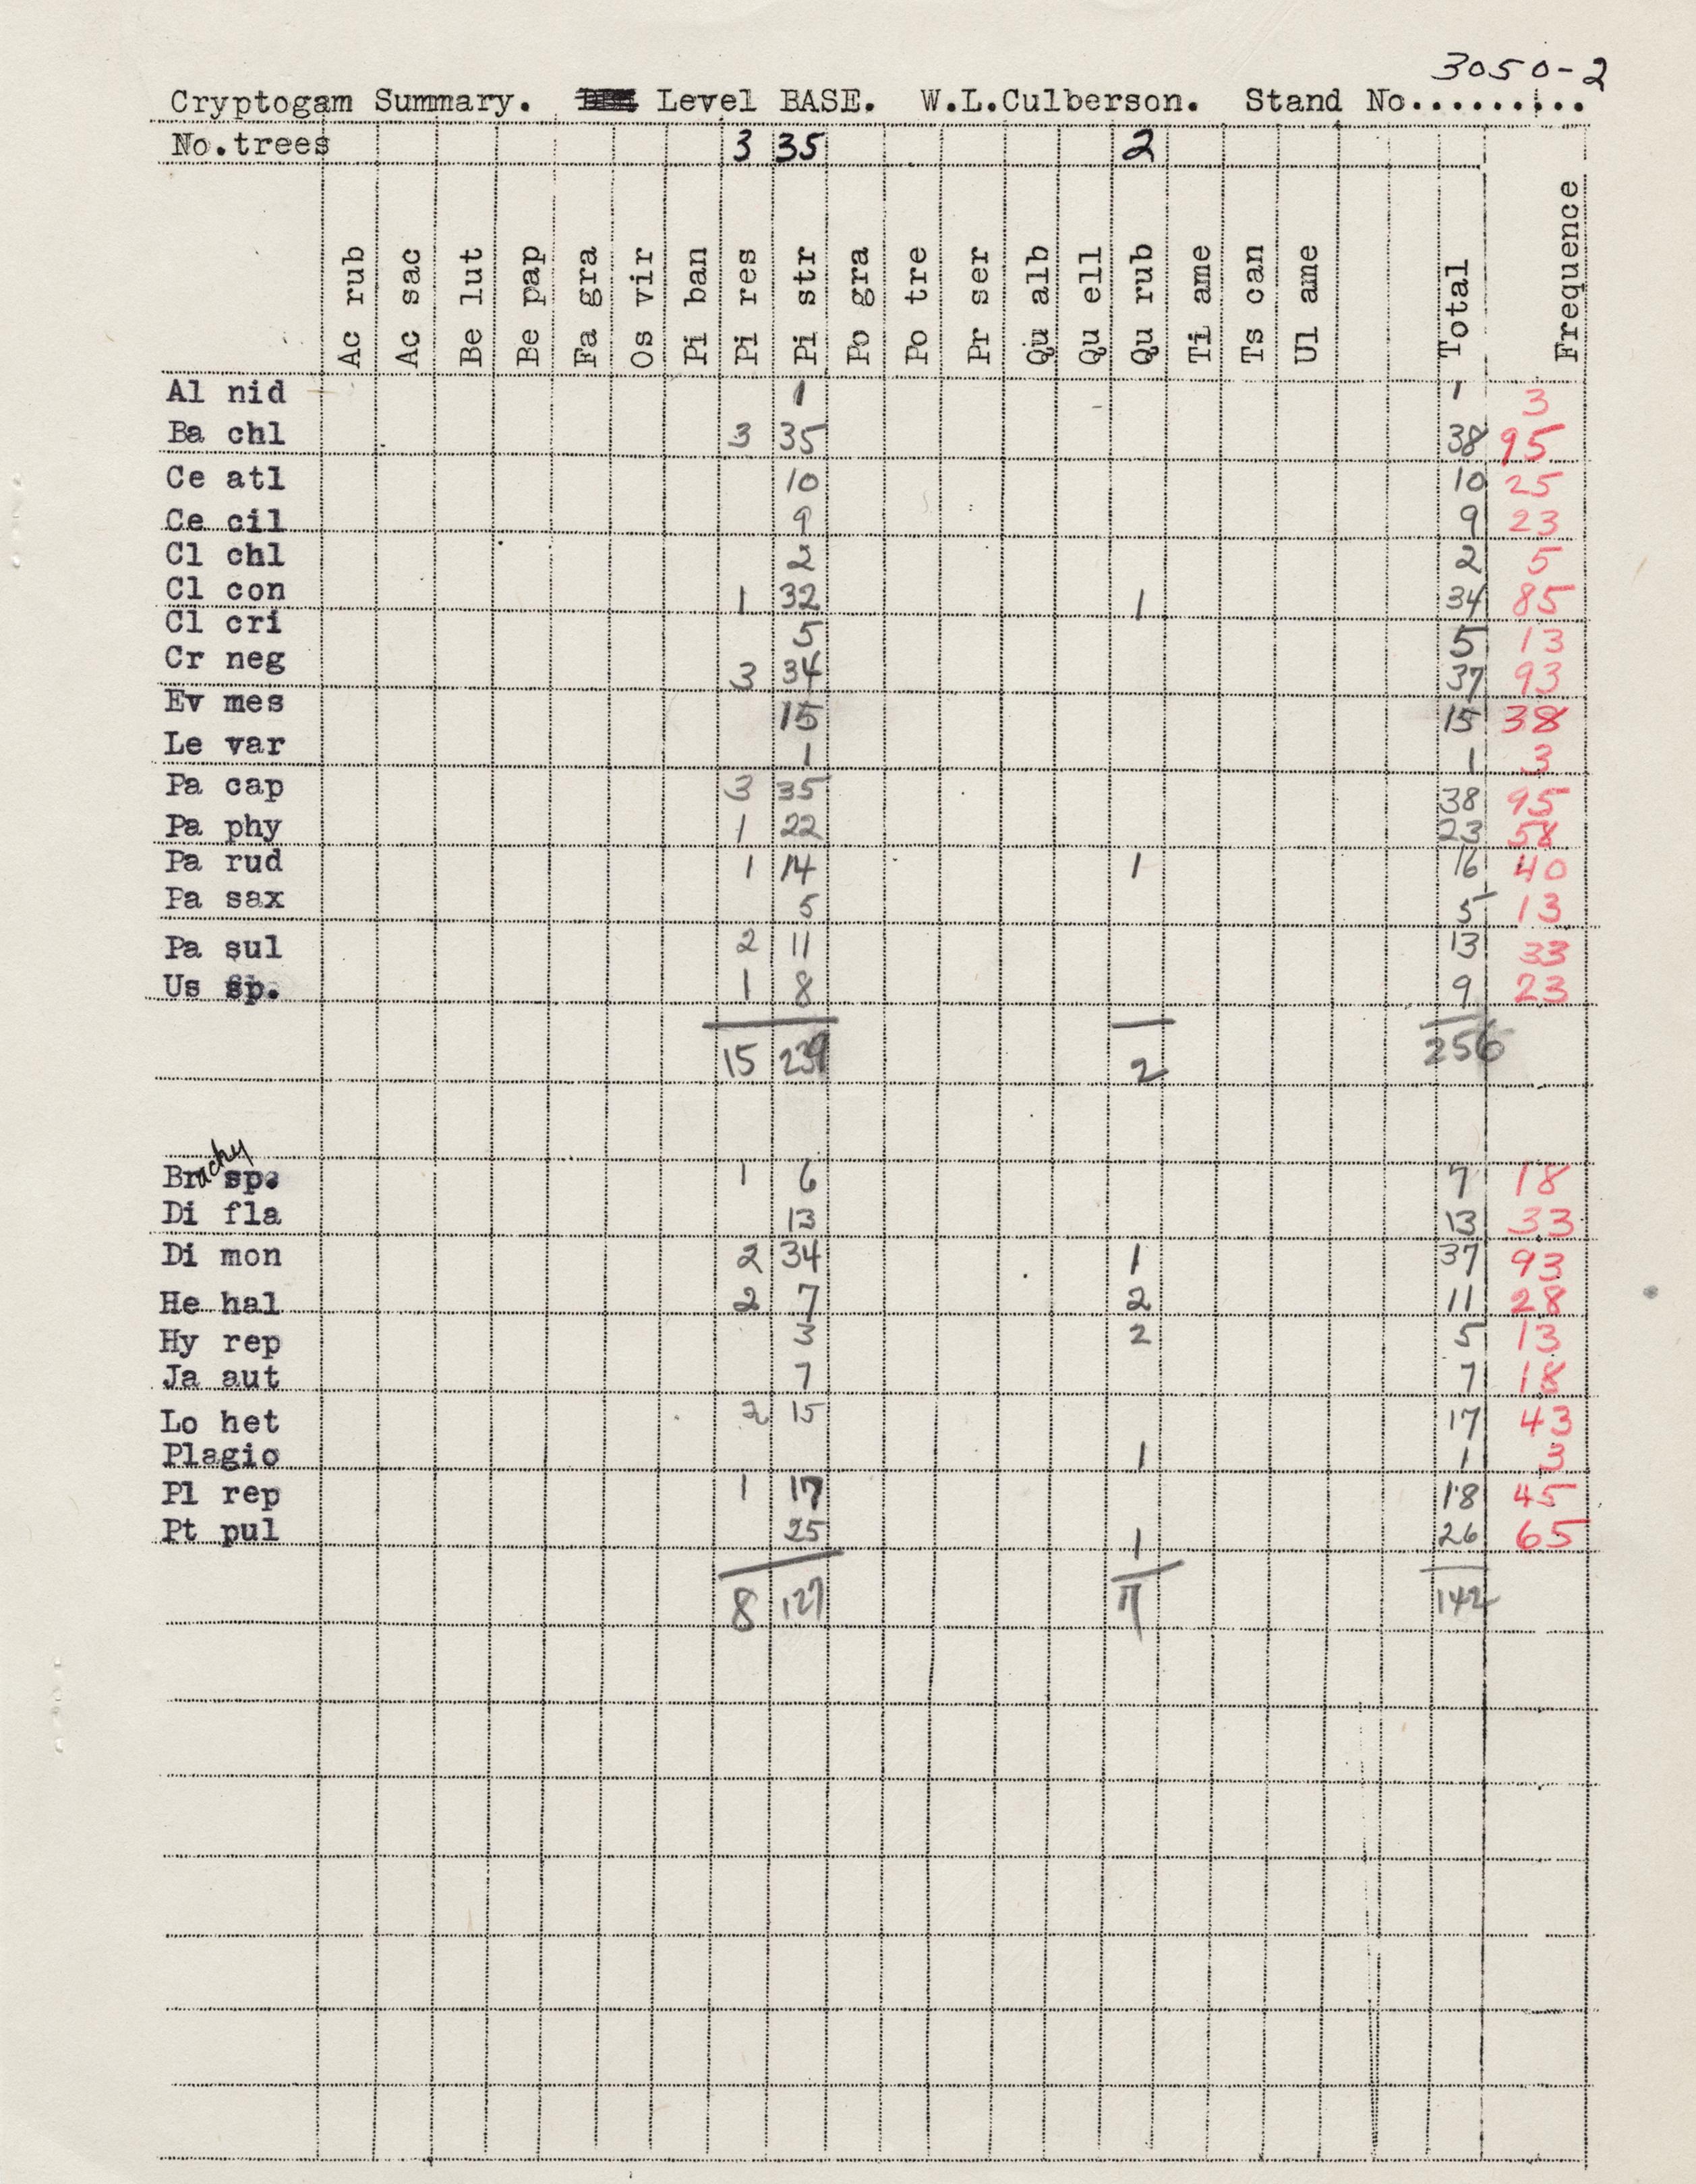 3050-2
Cryptogam Summary. Level BASE. W.L.Culberson. Stand No.........
No.trees 3 35 2
Ac rub Ac sac Be lut Be pap Fa gra Os vir Pi ban Pi res Pi str Po gra Po tre Pr ser Qu alb Qu ell Qu rub Ti ame Ts can Ul ame Total Frequence
Al nid 1 1 3
Ba chl 3 35 38 95
Ce atl 10 10 25
Ce cil 9 9 23
Cl chl 2 2 5
Cl con 1 32 1 34 85
Cl cri 5 5 13
Cr neg 3 34 37 93
Ev mes 15 15 38
Le var 1 1 3
Pa cap 3 35 38 95
Pa phy 1 22 23 58
Pa rud 1 14 1 16 40
Pa sax 5 5 13
Pa sul 2 11 13 33
Us sp. 1 8 9 23
15 239 2 256
Brachy sp. 1 6 7 18
Di fla 13 13 33
Di mon 2 34 1 37 93
He hal 2 7 2 11 28
Hy rep 3 2 5 13
Ja aut 7 7 18
Lo het 2 15 17 43
Plagio 1 1 3
Pl rep 1 17 18 45
Pt pul 25 1 26 65
8 127 7 142